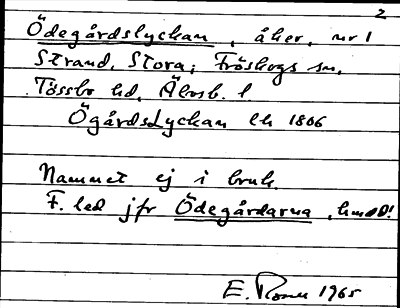 2
Ödegårdslyckan, åker, nr 1
Strand, Stora; Fröskogs sn,
Tössbo hd, Älvsb. l
ÖgårdsLyckan lh 1806
Namnet ej i bruk.
F. led jfr Ödegårdarna,
E. 1965